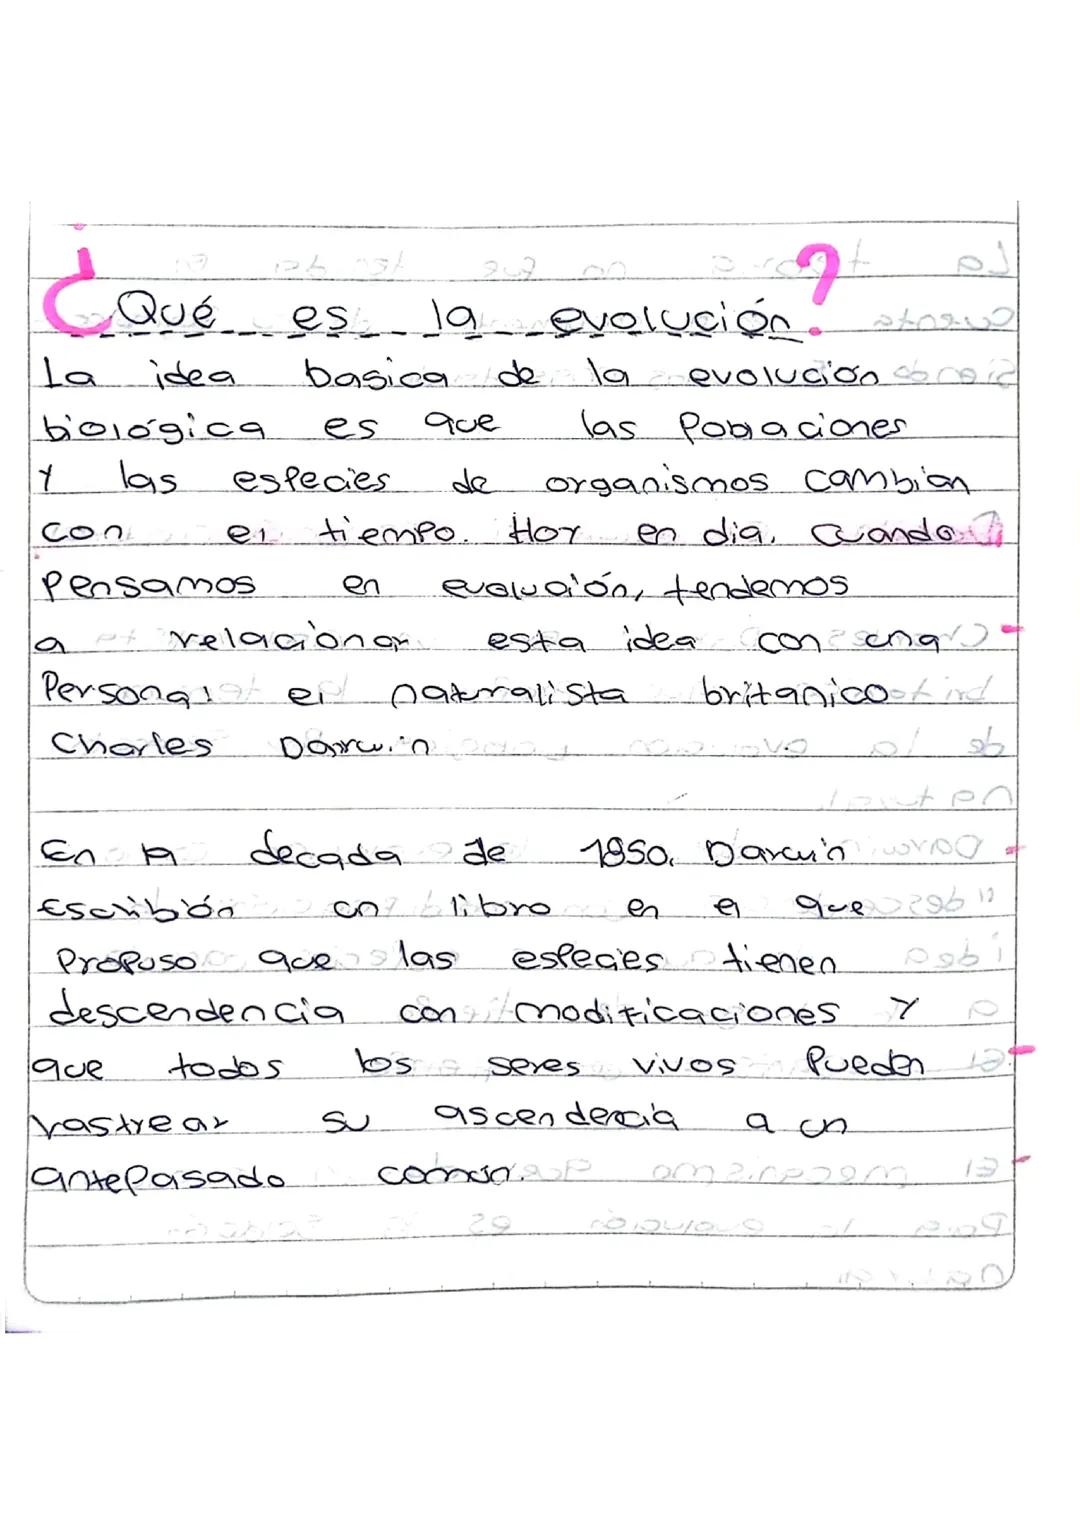 ¿Qué es la evolución?
La idea basica de la evolución
biológica es que las Pobaciones
Y las especies de organismos cambian
con el tiempo. Hoy en dia, cuando
Pensamos en evolución, tendemos
a relacionar esta idea con una
Persona: el naturalista britanico
Charles Darwin
En la decada de 1850, Darwin
Escribión un libro en el que
Propuso que las especies tienen
descendencia con modificaciones Y
que todos los seres vivos Pueden
rastrear su ascendencia a un
antepasado común.